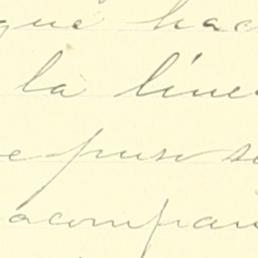 que hac
la líne
e puso s
acompañ